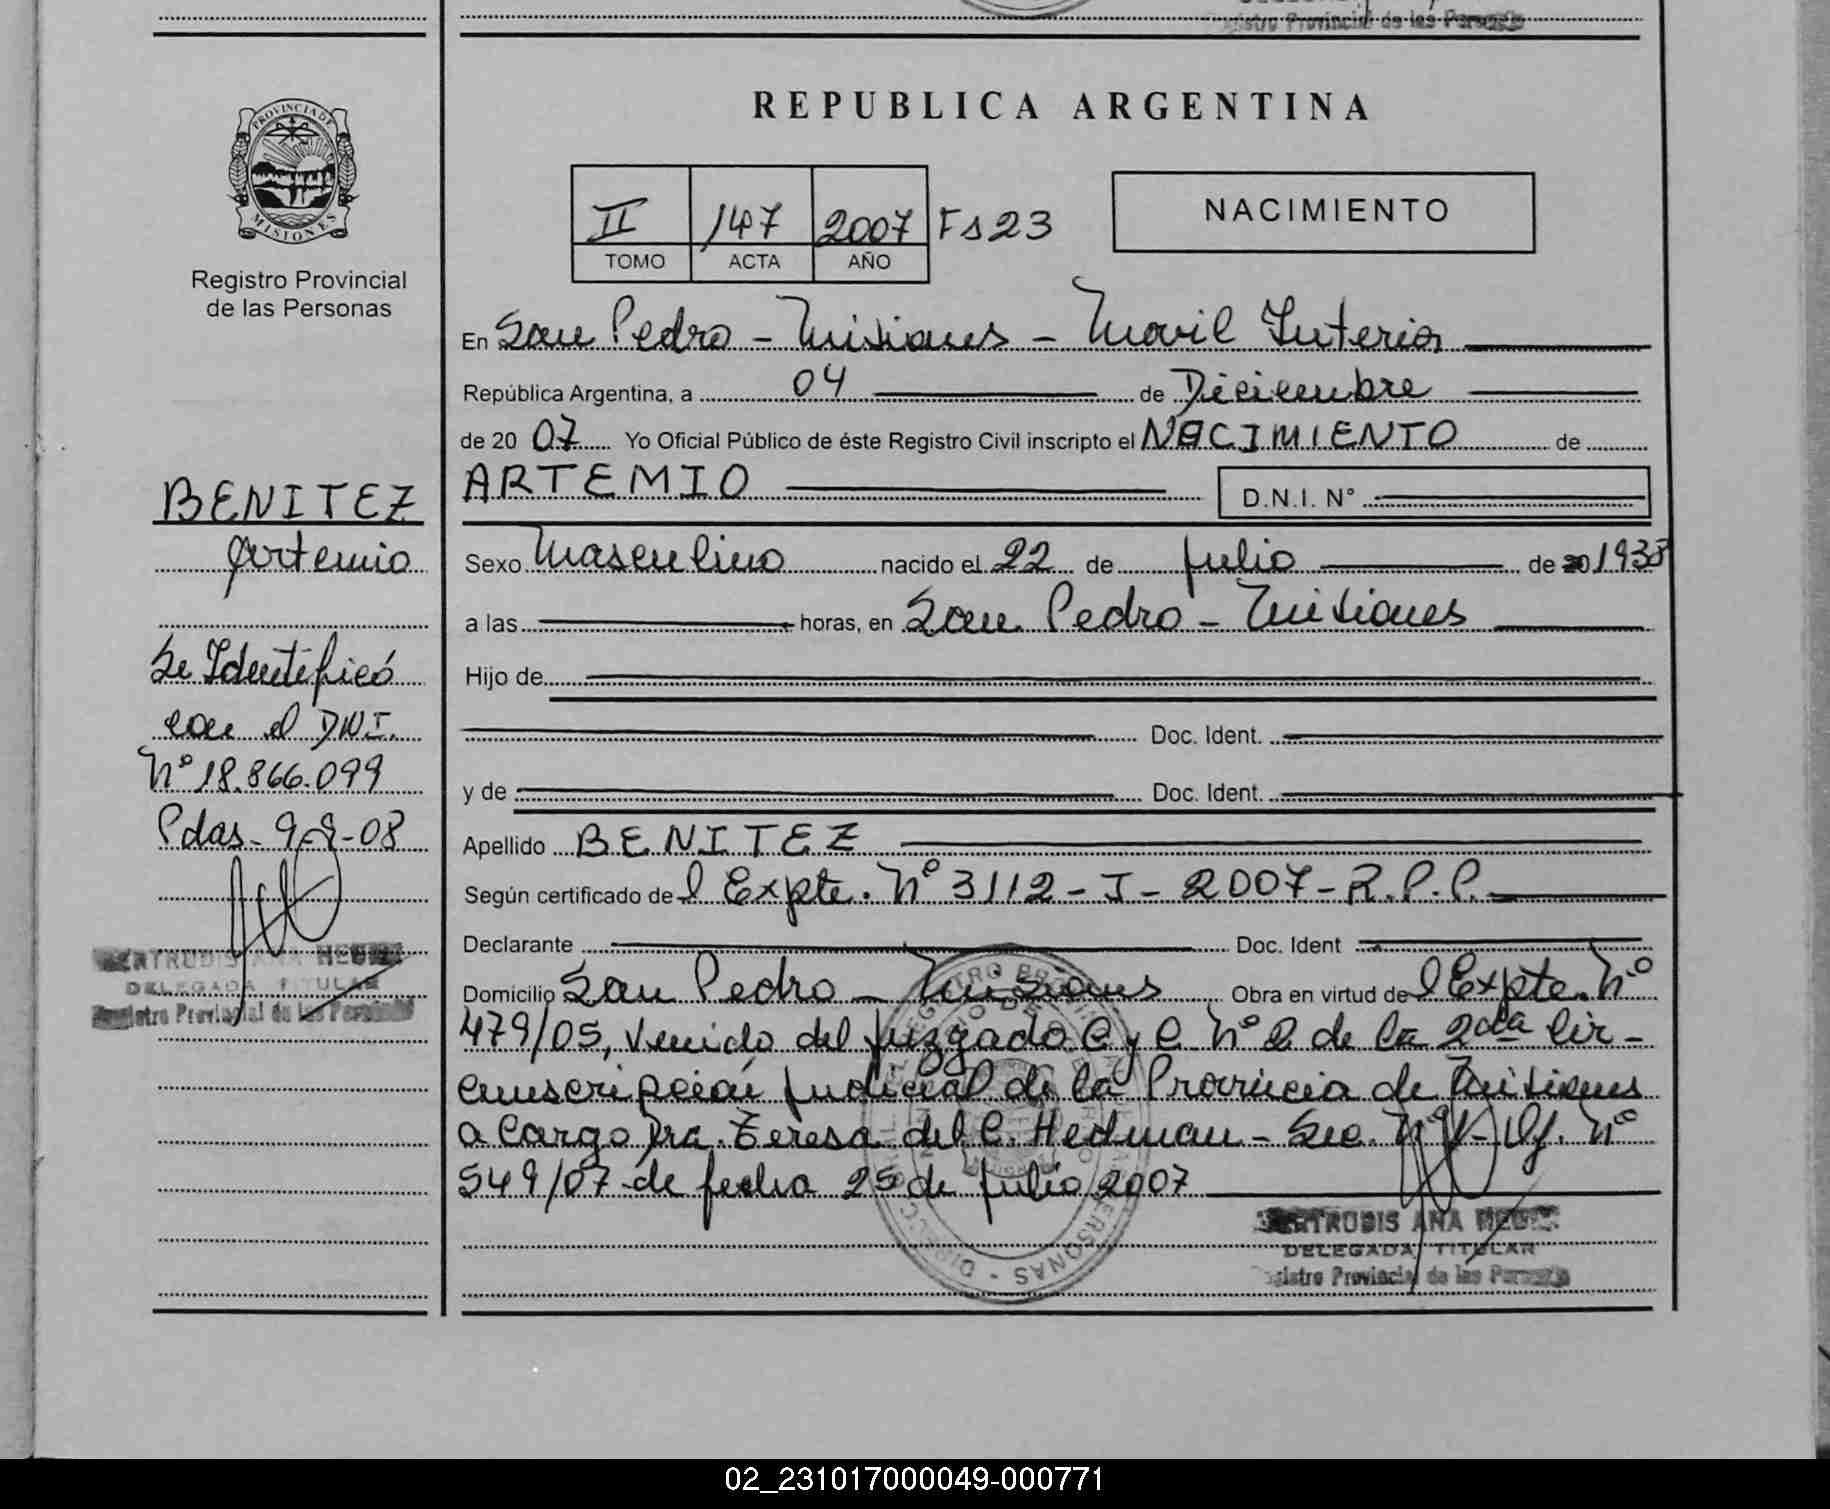 Registro Provincial de las Personas
PROVINCIA DE
MISIONES
Registro Provincial
de las Personas
REPUBLICA ARGENTINA
II 147 2007 Fs 23
TOMO ACTA AÑO
NACIMIENTO
En San Pedro - Misiones - Movil Interior
República Argentina, a 04 de Diciembre
de 20 07 Yo Oficial Público de éste Registro Civil inscripto el NACIMIENTO de
ARTEMIO D.N.I. N°
Sexo Masculino nacido el 22 de Julio de 20 1938
a las horas, en San Pedro - Misiones
Hijo de
Doc. Ident.
y de Doc. Ident.
Apellido BENITEZ
Según certificado de l Expte. N° 3112 - J - 2007 - R.P.P.
Declarante Doc. Ident
Domicilio San Pedro - Misiones Obra en virtud de l Expte. N°
479/05, Venido del Juzgado C y C N° 2 de la 2da Cir-
cunscripción Judicial de la Provincia de Misiones
a Cargo Dra. Teresa del C. Hedman - Sec. N° Of. N°
549/07 de fecha 25 de Julio 2007
GERTRUDIS ANA
DELEGADA TITULAR
Registro Provincial de las Personas
BENITEZ
Artemio
Se Identificó
con el DNI.
N° 18.866.099
Pdas - 9-9-08
GERTRUDIS ANA
DELEGADA TITULAR
Registro Provincial de las Personas
02_231017000049-000771